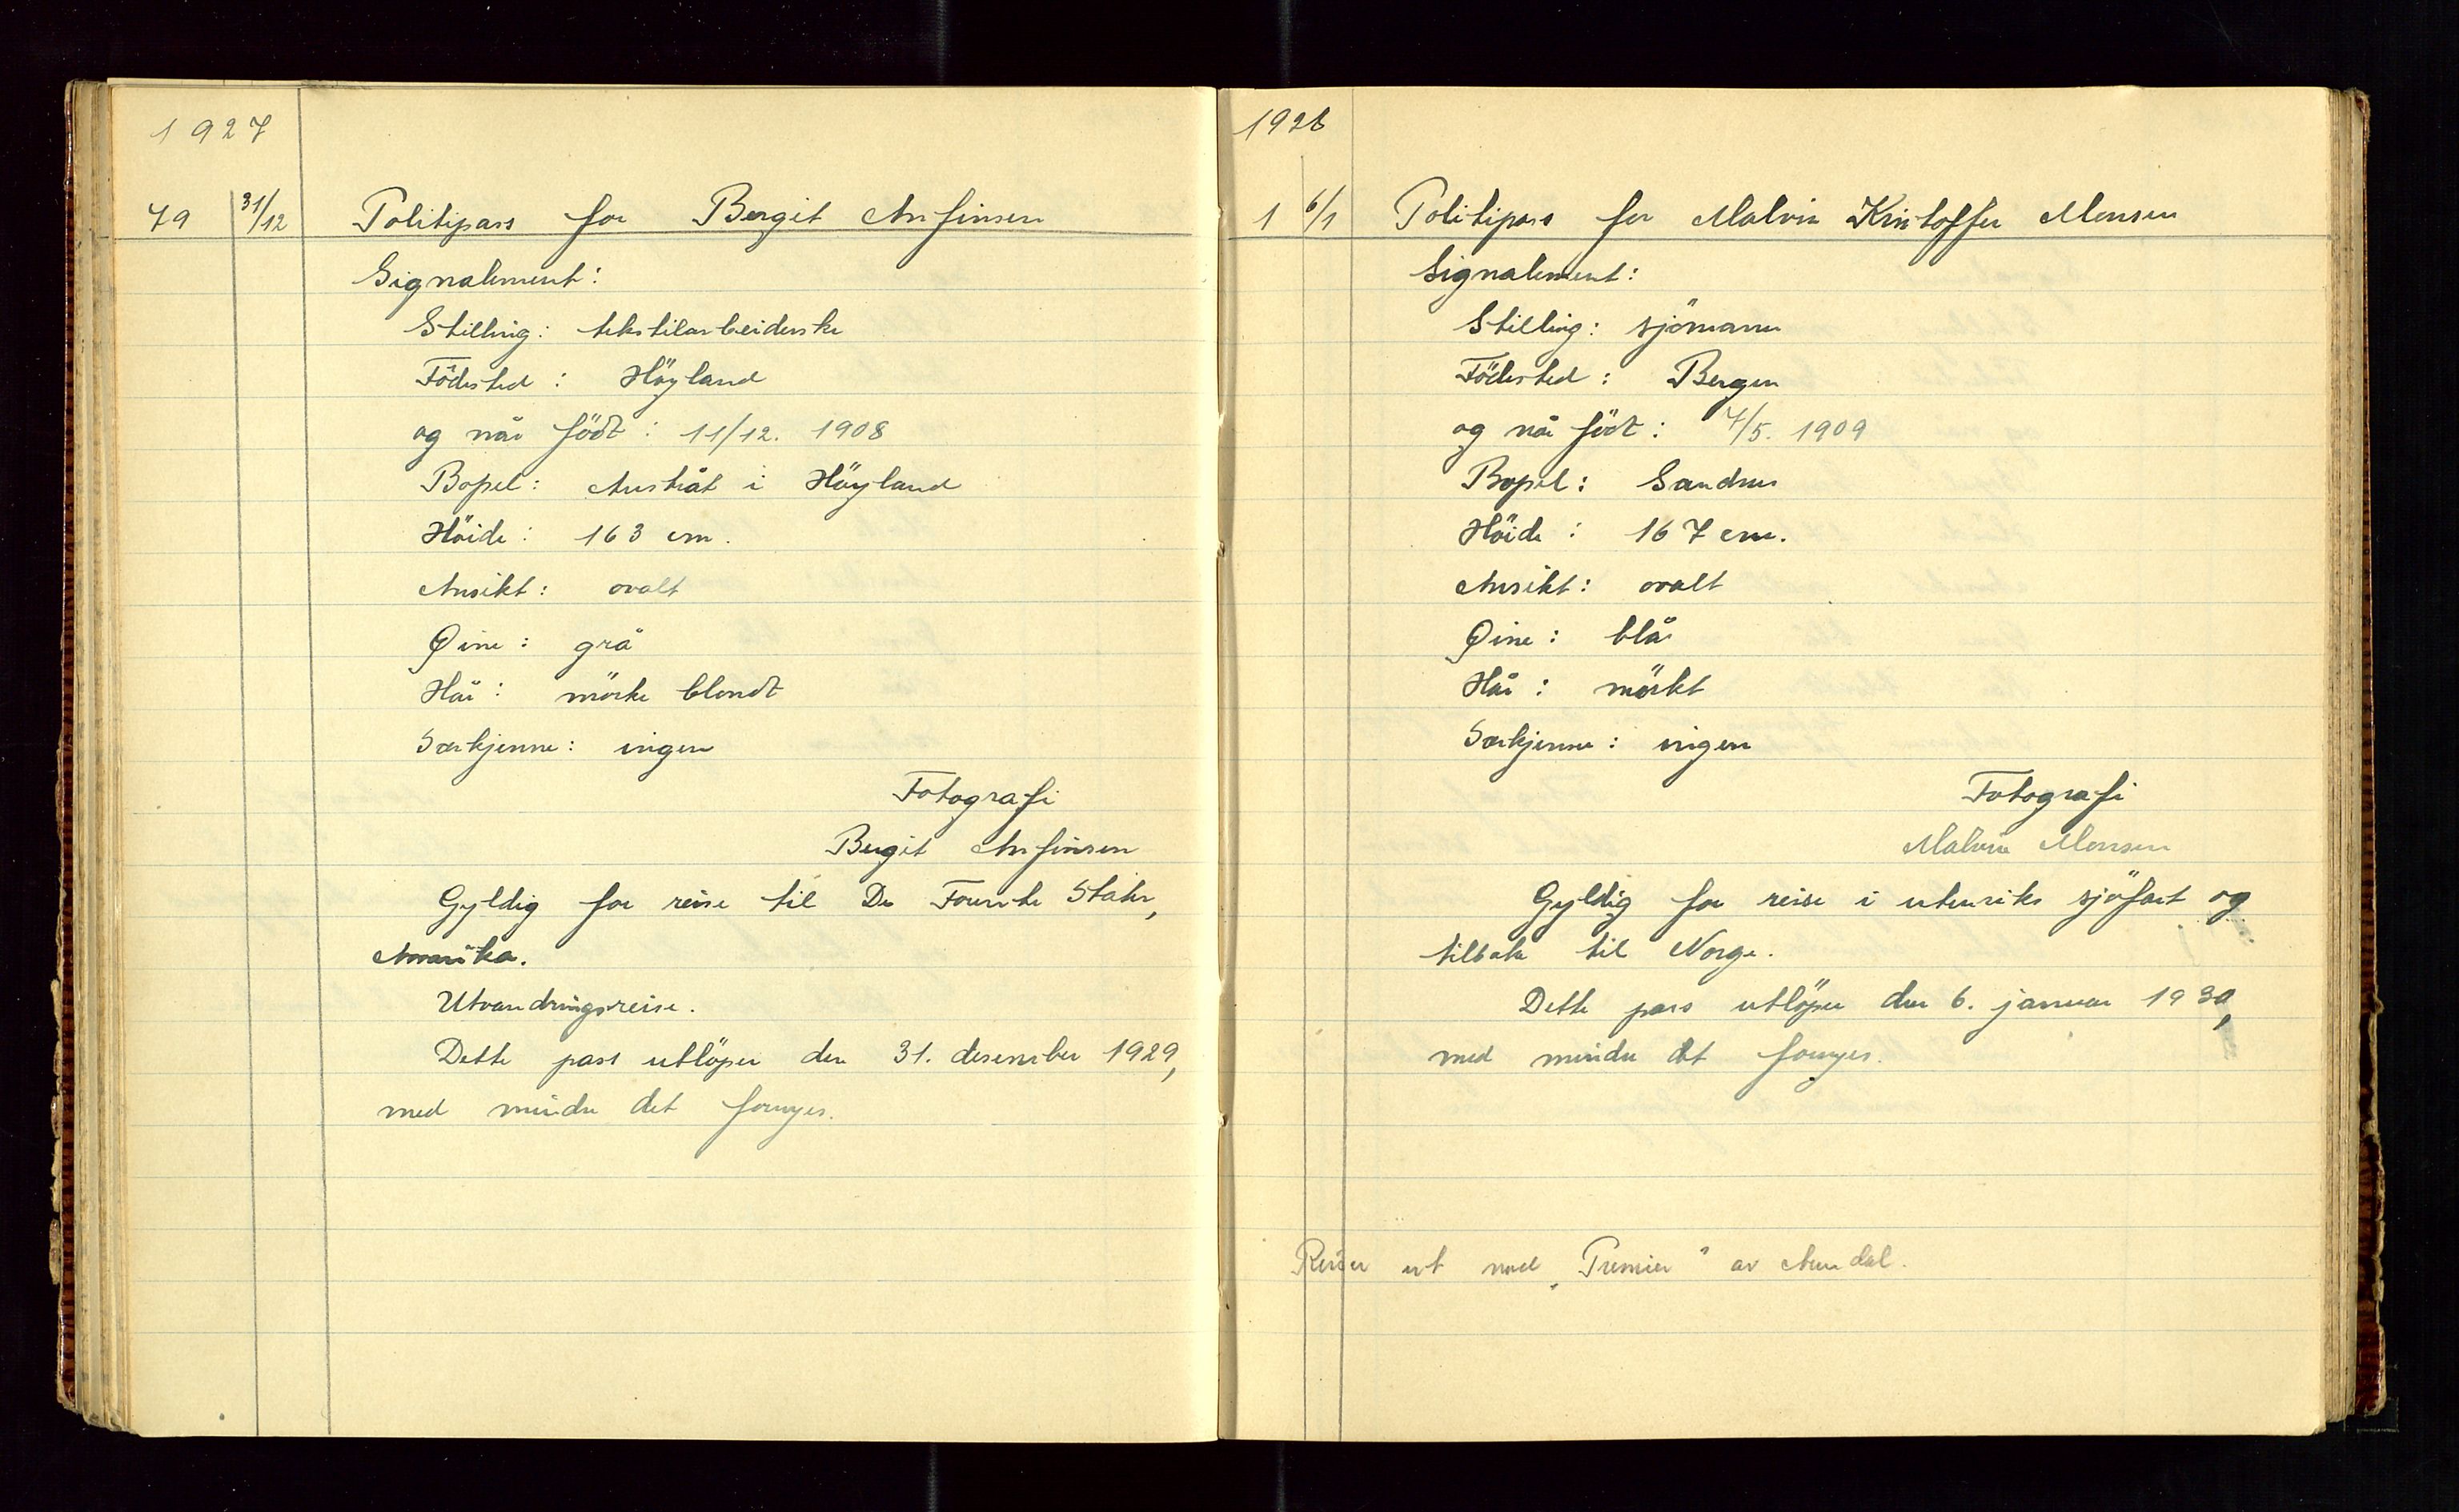 1927
79 31/12 Politipass for Bergit Anfinsen
Signalement:
Stilling: tekstilarbeiderske
Födested: Höyland
og når födt: 11/12. 1908
Bopel: Austråt i Höyland
Höide: 163 cm.
Ansikt: ovalt
Øine: grå
Hår: mörke blondt
Særkjenne: ingen
Fotografi
Bergit Anfinsen
Gyldig for reise til De Forente Stater,
Amerika.
Utvandringsreise.
Dette pass utlöper den 31. desember 1929,
med mindre det fornyes.
1928
1 6/1 Politipass for Malvin Kristoffer Monsen
Signalement:
Stilling: sjömann
Födested: Bergen
og når födt: 7/5. 1909
Bopel: Sandnes
Höide: 167 cm.
Ansikt: ovalt
Øine: blå
Hår: mörkt
Særkjenne: ingen
Fotografi
Malvin Monsen
Gyldig for reise i utenriks sjöfart og
tilbake til Norge.
Dette pass utlöper den 6. januar 1930,
med mindre det fornyes.
Reiser ut med „Premier" av Arendal.